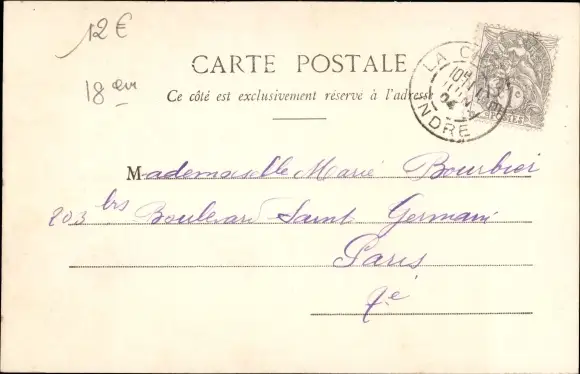 12€
18 eur
CARTE POSTALE
Ce côté est exclusivement réservé à l'adresse
LA
10
04
INDRE
POSTES
Mademoiselle Marie Bourbier
203 bis Boulevard Saint Germain
Paris
7e